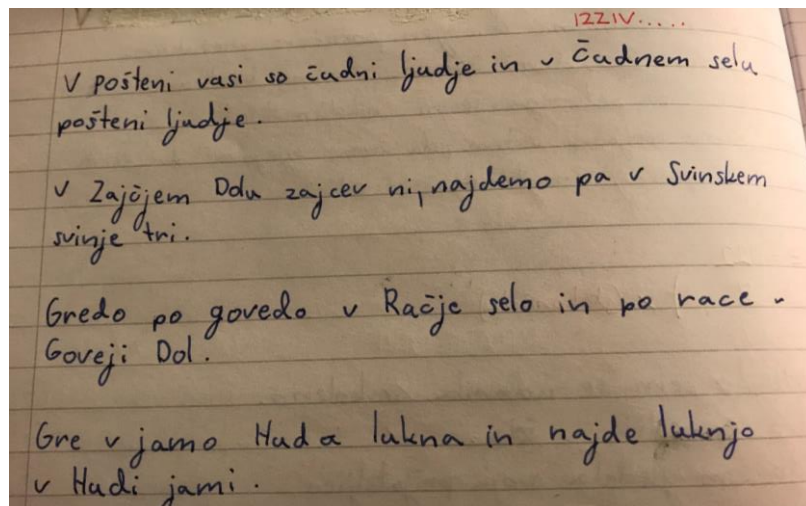 IZZIV.....
V pošteni vasi so čudni ljudje in v Čudnem selu
pošteni ljudje.
V Zajčjem Dolu zajcev ni, najdemo pa v Svinskem
svinje tri.
Gredo po govedo v Račje selo in po race v
Goveji Dol.
Gre v jamo Huda lukna in najde luknjo
v Hudi jami.